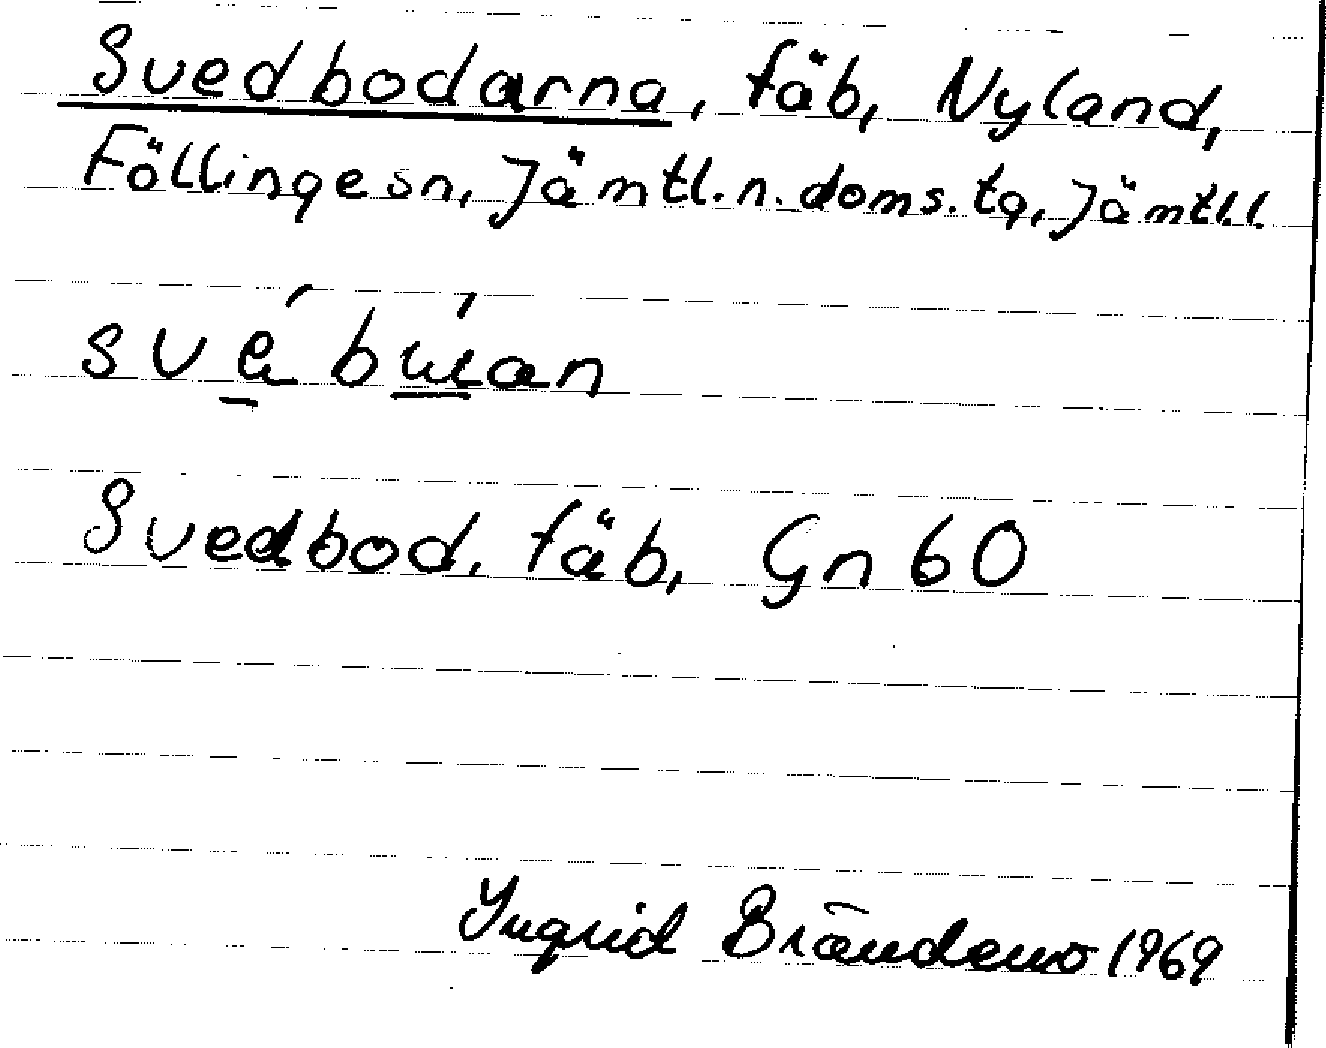 Svedbodarna, fäb, Nyland,
Föllinge sn, Jämtl. n. doms. tg, Jämtl. l.
Svedbod. fäb, Gn 60
Ingrid Brändemo 1969